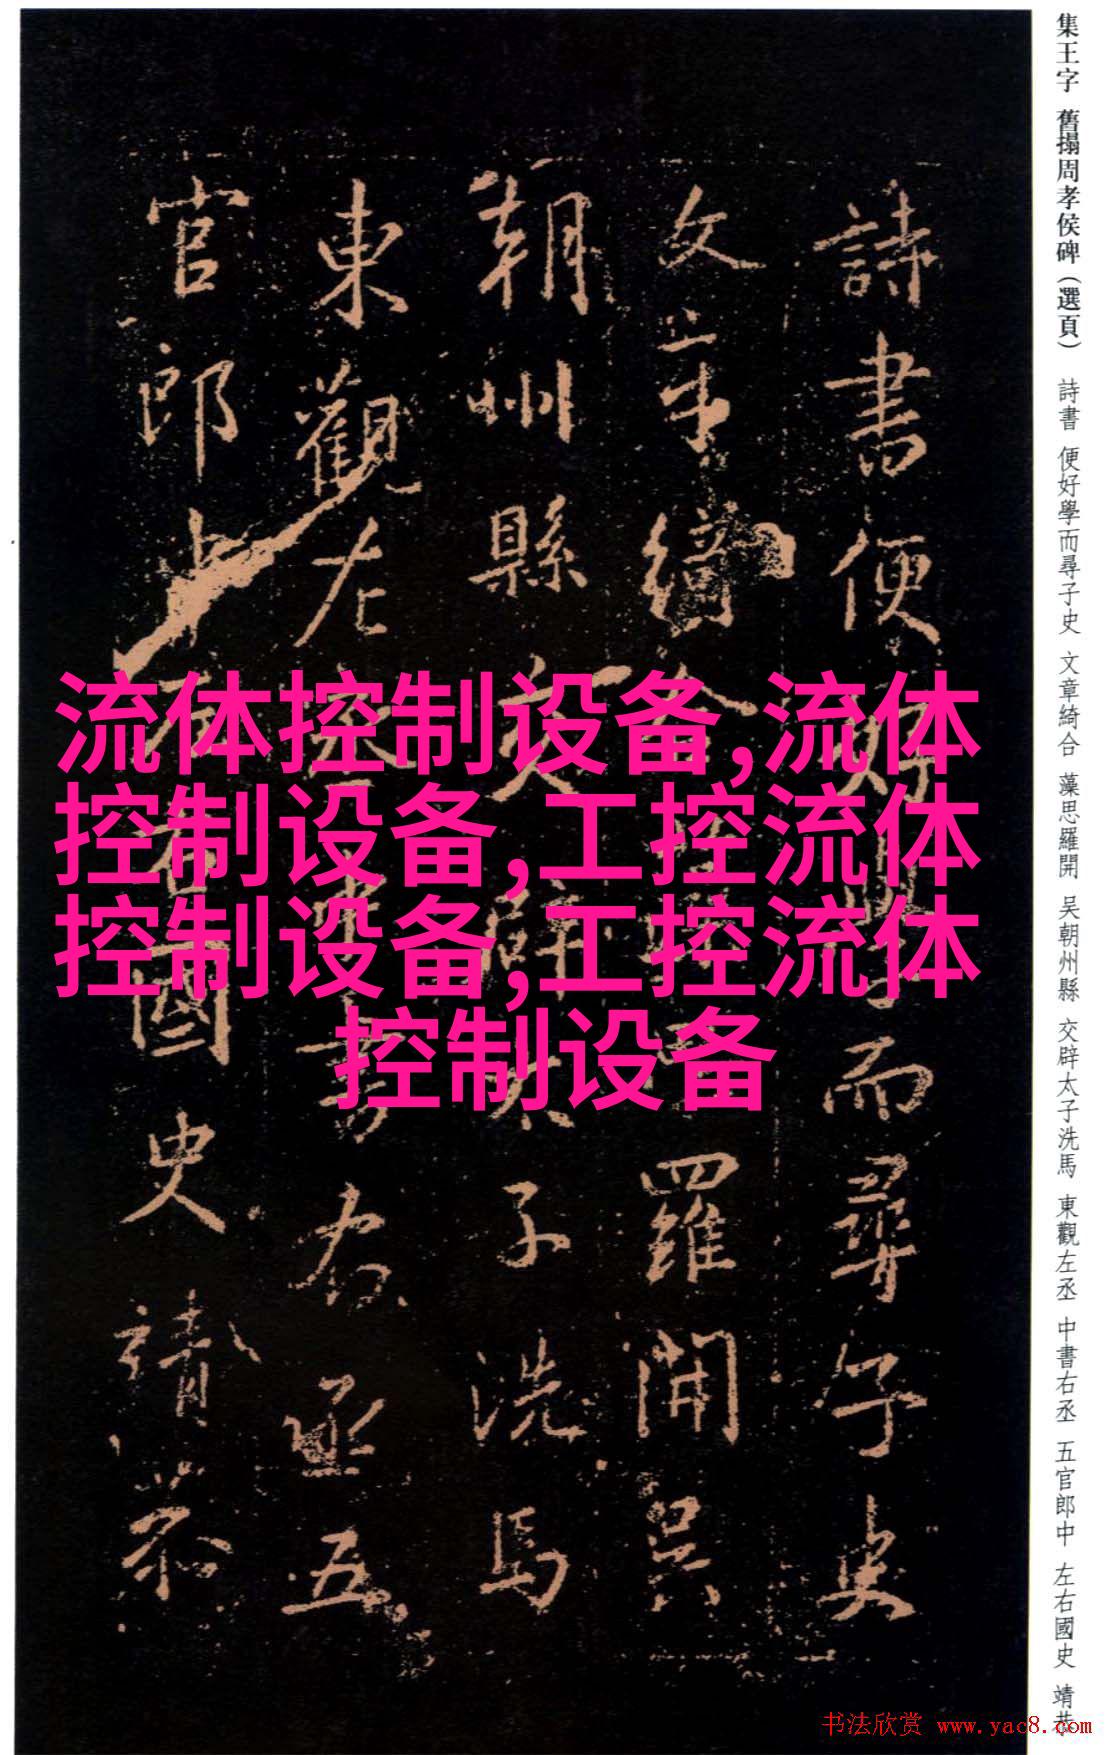 集王字 舊搨周孝侯碑(選頁) 詩書 便好學而尋子史 文章綺合 藻思羅開 吴朝州縣 交辟太子洗馬 東觀左丞 中書右丞 五官郎中 左右國史 靖恭
詩書便好學而尋子史
文章綺合藻思羅開吴
朝州縣交辟太子洗馬
東觀左丞中書右丞五
官郎中左右國史靖恭
流体控制设备,流体
控制设备,工控流体
控制设备,工控流体
控制设备
书法欣赏 www.yac8.com